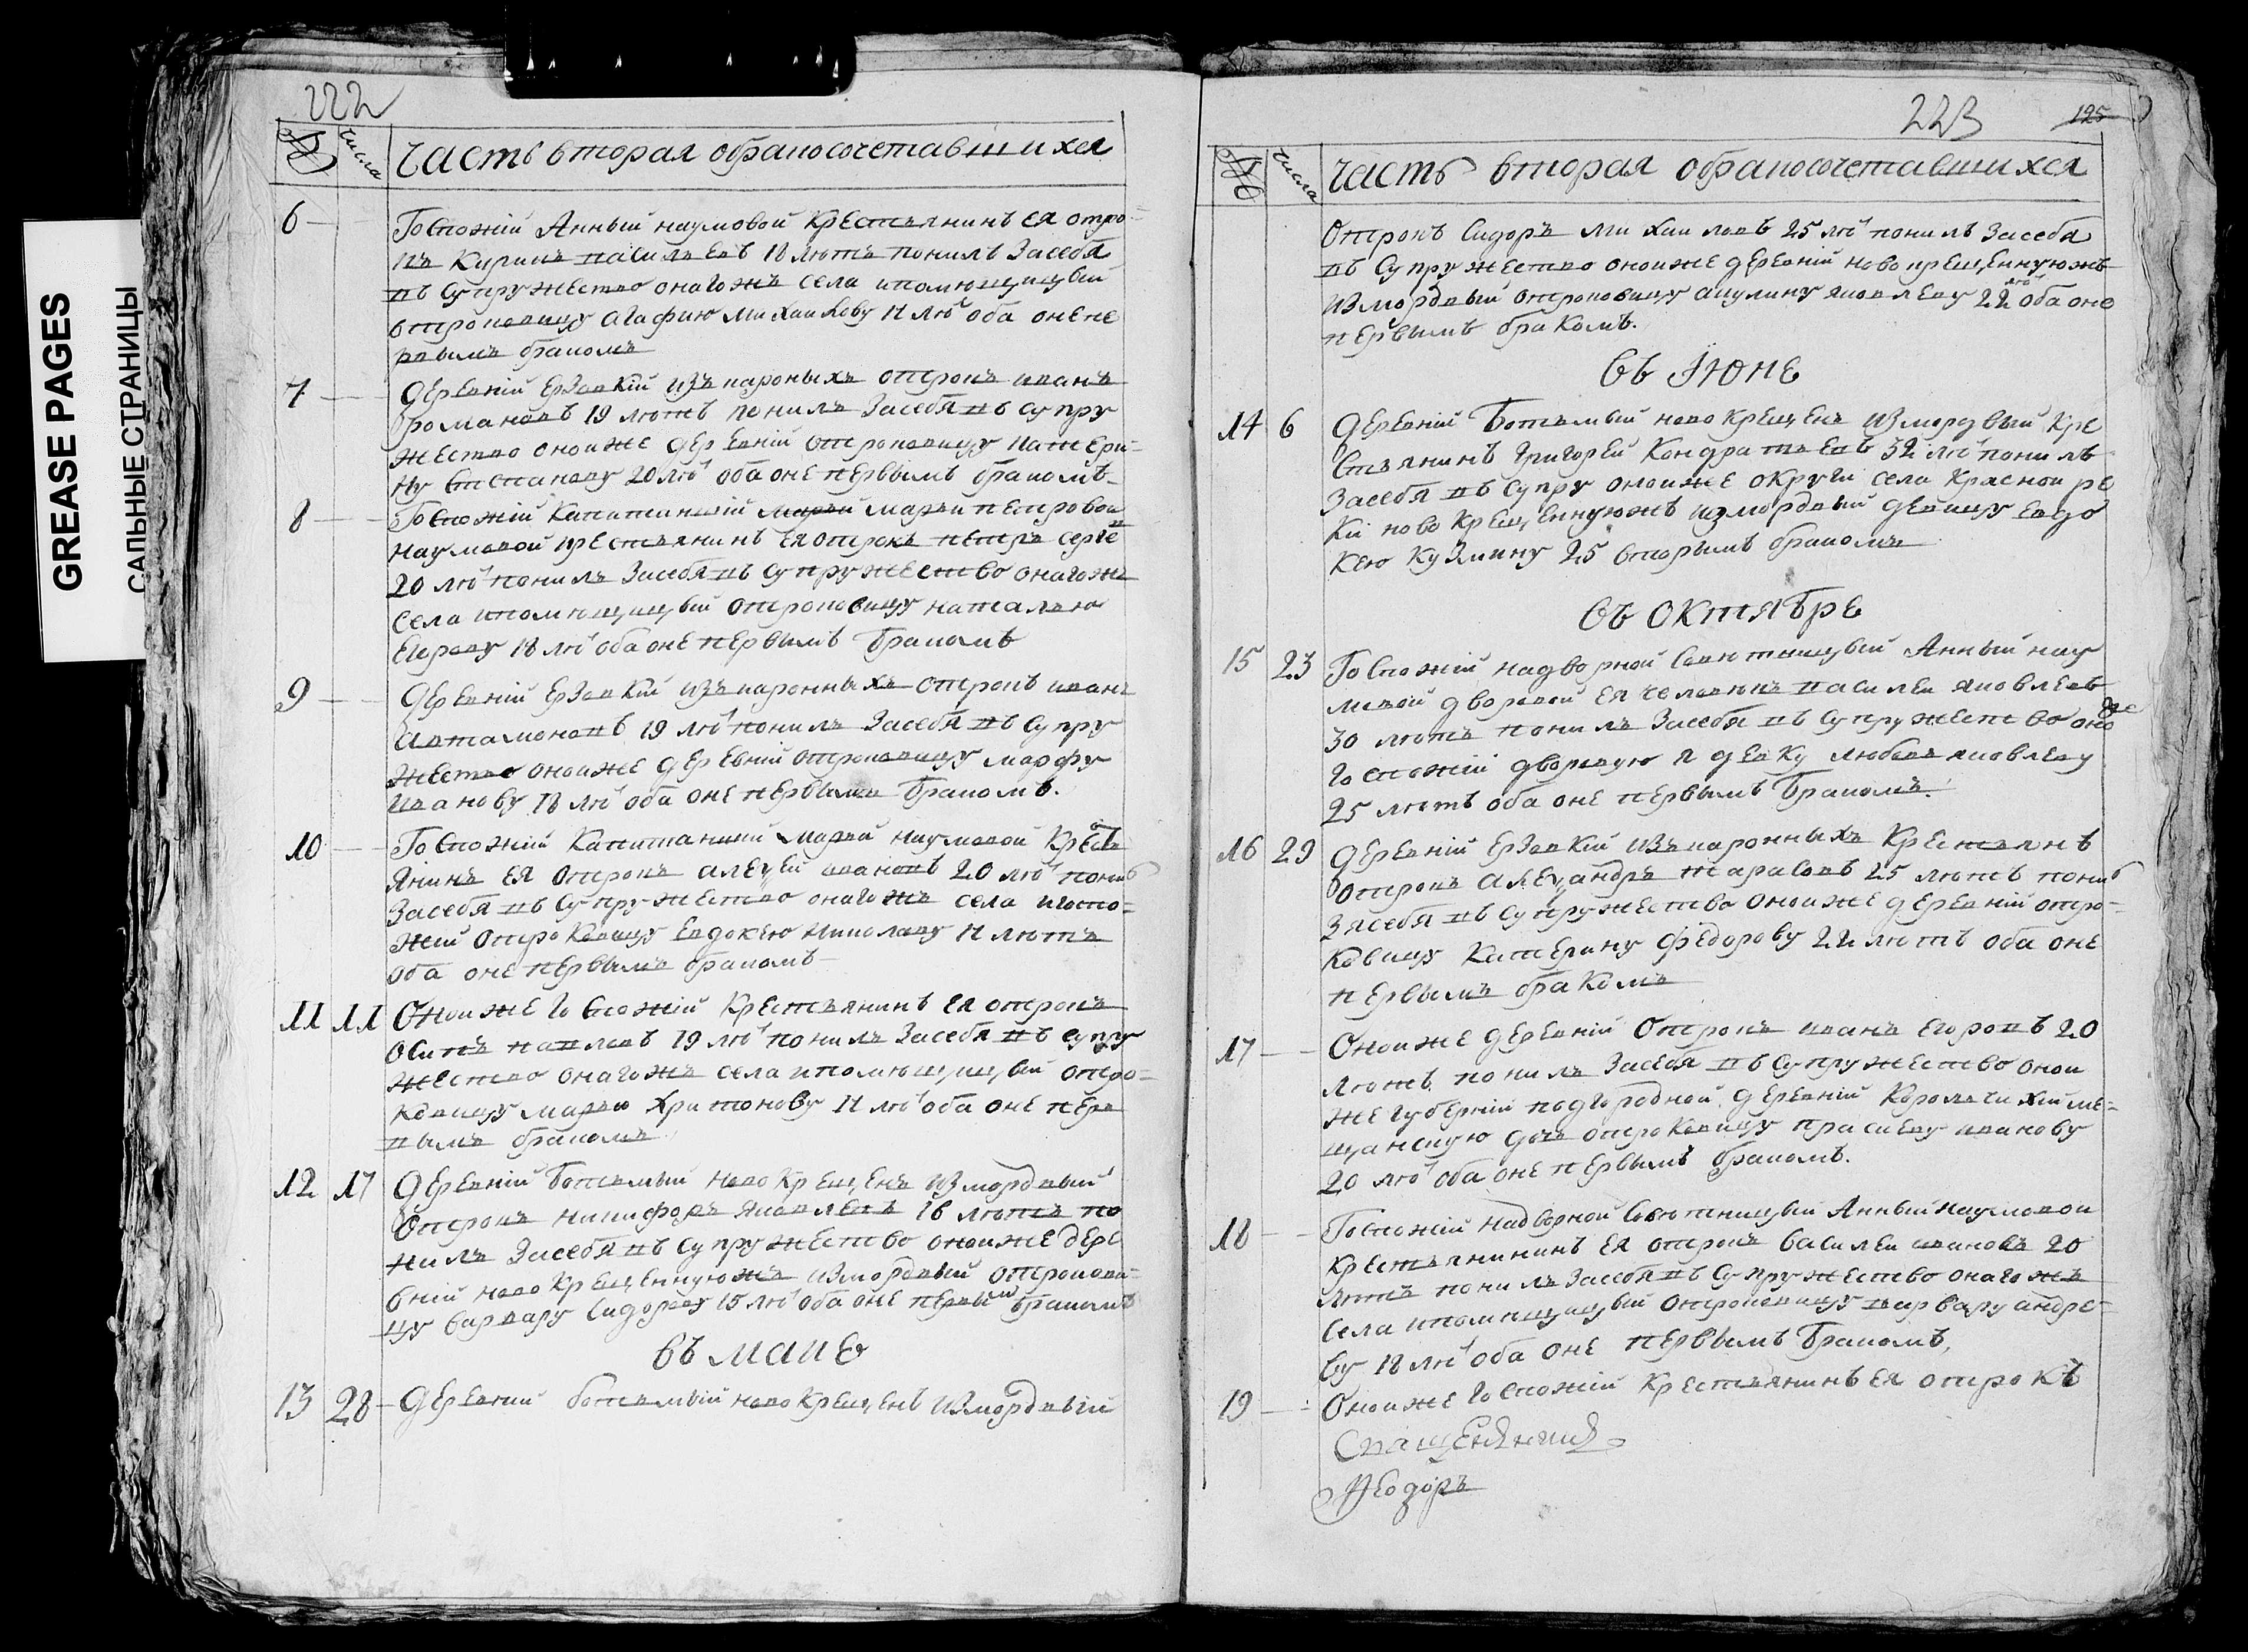 GREASE PAGES
САЛЬНЫЕ СТРАНИЦЫ
222
№ числа часть вторая обракосочетавшихся
6 Госпожій Анный наумовой Крестьянинъ ея отро=
къ Кирилъ васильевъ 18 лѣтъ понялъ Засебя
въ Супружество онагожъ села ипомющицый
отроковицу агафию михаилову 17 лѣт оба оне пе
рвымъ бракомъ
7 деревній Ерзовкій изъ отрокъ иванъ
романовъ 19 лѣтъ понялъ Засебя въ Супру
жество оноиже деревній отроковицу катери=
ну степанову 20 лѣт оба оне первымъ бракомъ
8 Госпожій Капитаншій марьи петровои
наумовой крестьянинъ ея отрокъ петръ сергѣ
20 лѣт понялъ Засебя въ Супружество онагожъ
села ипомющицый отроковицу наталью
Егорову 18 лѣт оба оне первымъ бракомъ
9 деревній Ерзовкій отрокъ иванъ
Автамоновъ 19 лѣт понялъ Засебя въ Супру
жество оноиже деревній отроковицу марфу
иванову 18 лѣт оба оне первымъ бракомъ.
10 Госпожій Капитаншій марьй наумовой Кресть
янинъ ея отрокъ алеѯѣй ивановъ 20 лѣт поня
Засебя въ Супружество онагожъ села игоспо=
жій отроковицу Евдокею николаву 17 лѣтъ
оба оне первымъ бракомъ
11 11 Оноиже Госпожій Крестьянинъ ея отрокъ
Осипъ павловъ 19 лѣт понялъ Засебя въ супру
жество онагожъ села ипомющицый отро=
ковицу марью Харитонову 17 лѣт оба оне перв
вымъ бракомъ
12 17 деревній Ботьмый новокрещенъ измордвый
Отрокъ никифоръ яковлевъ 16 лѣтъ по
нялъ Засебя въ Супружество оноиже дере
вній новокрещеннуюжъ измордвый отрокови=
цу варвару Сидорову 15 лѣт оба оне первым бракомъ
въ маие
13 28 деревний ботьмый новокрещенъ измордвый
223
125
№ числа часть вторая обракосочетавшихся
Отрокъ Сидоръ михаиловъ 25 лѣт понялъ Засебя
въ Супружество оноиже деревній новокрещеннуюжъ
измордвый отроковицу акулину яковлеву 22 лѣт оба оне
первымъ бракомъ.
въ Іюне
14 6 деревній Ботьмый новокрещенъ измордвый Кре
стьянинъ Григорей Кондратьевъ 32 лѣт понялъ
Засебя въ Супру оноиже округи села Краснои ре
кі новокрещеннуюжъ измордвый девицу Евдо
кею Кузмину 25 вторымъ бракомъ
въ октябре
15 23 Госпожій надворной Советницый Анный нау
мовой дворовой ея человѣкъ василеи яковлевъ
30 лѣтъ понялъ Засебя въ Супружество оноже
госпожій дворовую девку любовь яковлеву
25 лѣтъ оба оне первымъ Бракомъ.
16 29 деревній Ерзовкій Крестьянъ
отрокъ алеѯандръ тарасовъ 25 лѣтъ поня
Засебя въ Супружество оноиже деревній отро=
ковицу Катерину Федорову 22 лѣтъ оба оне
первымъ бракомъ
17 Оноиже деревній Отрокъ иванъ Егоровъ 20
лѣтъ понялъ Засебя въ Супружество онои
же губерній подгородной деревній ме=
щанскую дочь отроковицу праскеву иванову
20 лѣт оба оне первымъ бракомъ.
18 Госпожій надворной Советницый Анный наумовои
крестьянининъ ея отрокъ василеи ивановъ 20
лѣтъ понялъ Засебя въ Супружество онагожъ
села ипомющицый отроковицу варвару андре=
ву 18 лѣт оба оне первымъ Бракомъ,
19 Оноиже госпожій Крестьянинъ ея отрокъ
Ѳеодоръ